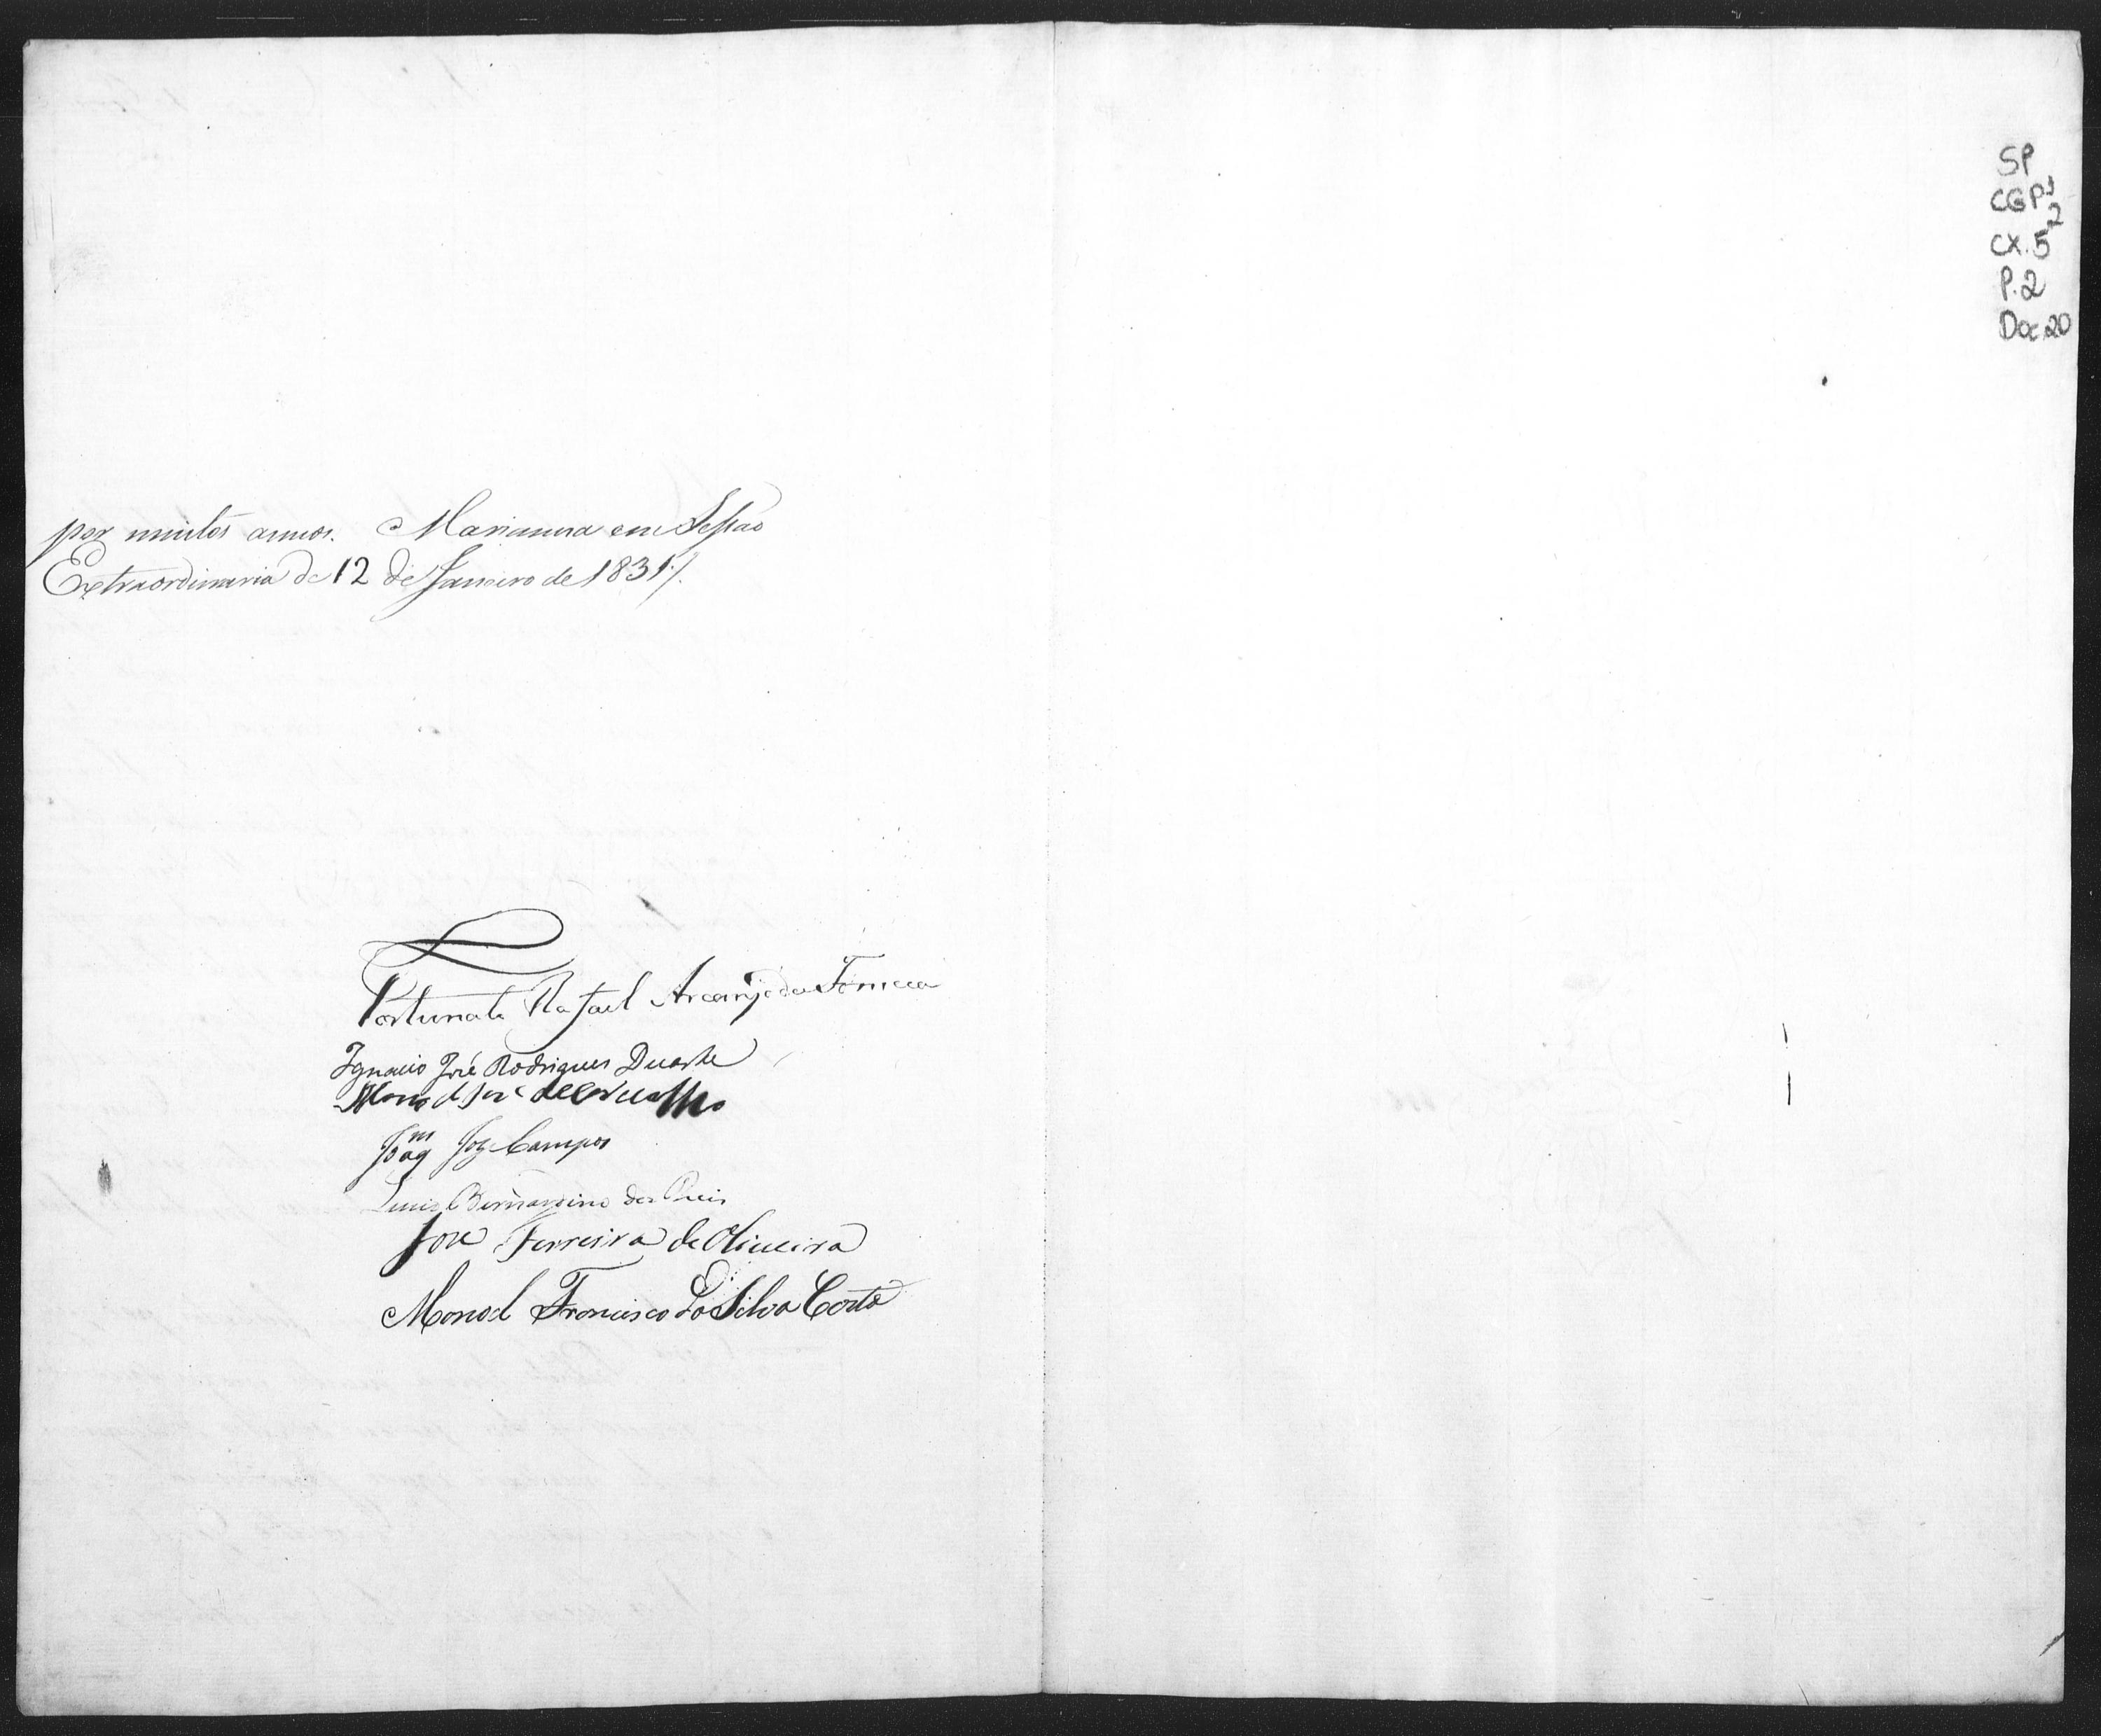 por muitos annos. Marianna em Sessão
Extraordinaria de 12 de Janeiro de 1831/.
Fortunato Rafael Arcanjo da Fonceca
Ignacio José Rodrigues Duarte
Mano el Joze de Carvalho
Joaqm Joze Campos
Luis Bernardino dos Reis
Joze Ferreira de Oliveira
Manoel Francisco da Silva Costa
SP
CGP1
2
CX. 5
P. 2
Doc. 20